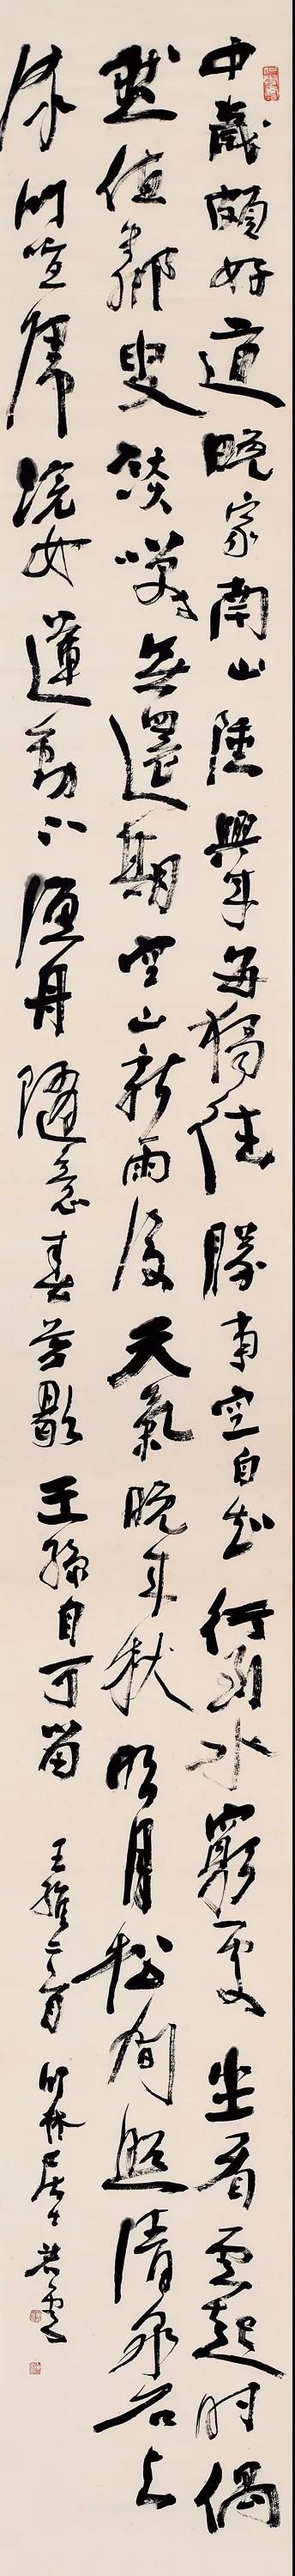 中歲頗好道晚家南山陲興来每獨往勝事空自知行到水窮處坐看雲起时偶
然值鄰叟談咲無還期空山新雨後天氣晚来秋明月松间照清泉石上
流竹喧歸浣女蓮動下漁舟隨意春芳歇王孫自可留 王維二首 竹林居士